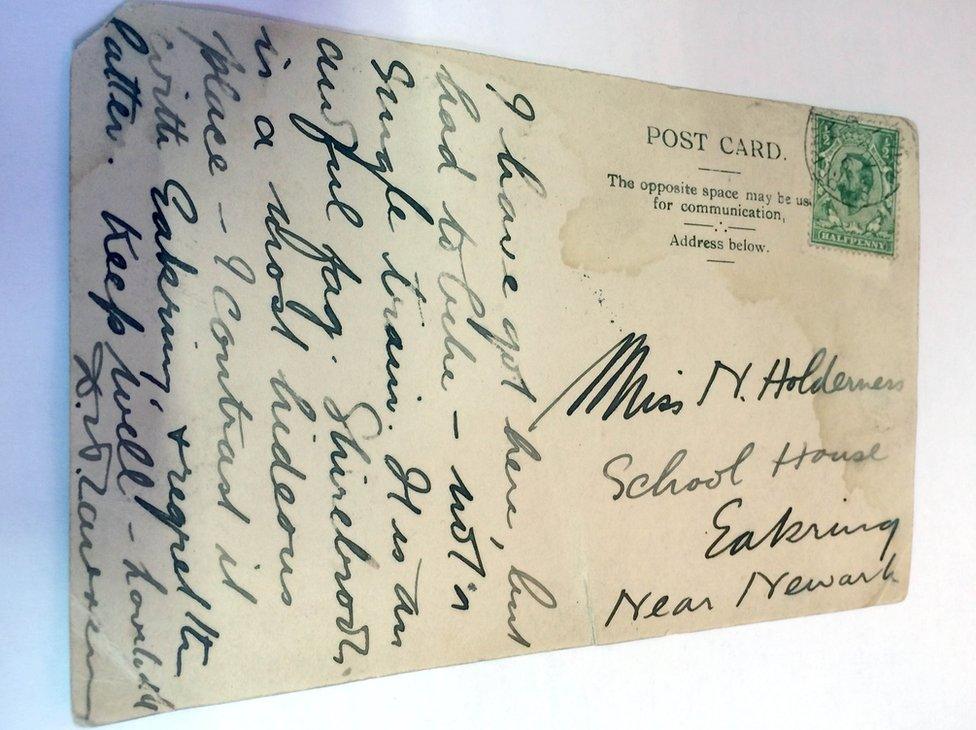 POST CARD.
The opposite space may be
for communication,
Address below.
HALFPENNY
Miss N. Holderness
School House
Eakring
Near Newark
I have got here, but
had to bike – not a
single train. It is an
awful fag. Shirebrook
is a most hideous
place – I contrast it
with Eakring, & regret the
latter. Keep well –
D.H. Lawrence